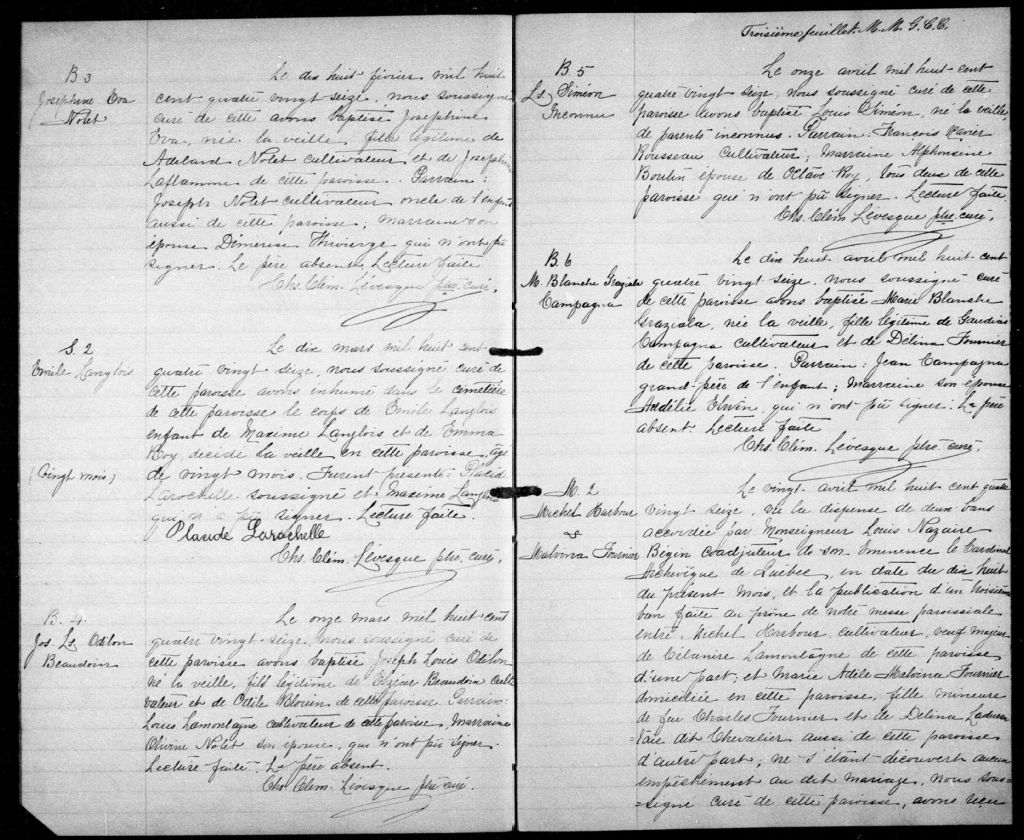 B 3
Josephine Eva
Nolet
Le dix huit février mil huit
cent quatre vingt seize, nous soussigné
curé de cette avons baptisé Josephine
Eva, née la veille fille légitime de
Adelard Nolet cultivateur et de Josephine
Laflamme de cette paroisse. Parrain:
Joseph Nolet cultivateur oncle de l'enfant
aussi de cette paroisse; marraine son
épouse Démerise Thivierge qui n'ont pû
signer. Le père absent. Lecture faite
Chs. Clém. Lévesque ptre. curé.
S. 2
Emile Langlois
(Vingt mois)
Le dix mars mil huit cent
quatre vingt seize, nous soussigné curé de
cette paroisse avons inhumé dans le cimetière
de cette paroisse le corps de Emile Langlois
enfant de Maxime Langlois et de Emma
Roy décédé la veille en cette paroisse, âgé
de vingt mois. Furent présents: Placide
Larochelle soussigné et Maxime Langlois
qui n'a pû signer. Lecture faite.
Placide Larochelle
Chs. Clém. Lévesque ptre. curé.
B. 4
Jos. Ls. Odilon
Beaudoin
Le onze mars mil huit cent
quatre vingt seize, nous soussigné curé de
cette paroisse avons baptisé Joseph Louis Odilon
né la veille, fils légitime de Elzéar Beaudoin culti
vateur et de Odile Blouin de cette paroisse Parrain:
Louis Lamontagne cultivateur de cette paroisse Marraine
Olivine Nolet son épouse, qui n'ont pû signer.
Lecture faite. Le père absent.
Chs. Clém. Lévesque ptre curé.
Troisième feuillet. M. M. G. C. C.
B. 5
Ls. Siméon
Inconnu
Le onze avril mil huit cent
quatre vingt seize, nous soussigné curé de cette
paroisse avons baptisé Louis Siméon, né la veille
de parents inconnus. Parrain: François Xavier
Rousseau cultivateur; Marraine Alphonsine
Boutin épouse de Octave Roy, tous deux de cette
paroisse qui n'ont pû signer. Lecture faite
Chs. Clém. Lévesque ptre curé.
B. 6
M. Blanche Graziala
Campagna
Le dix huit avril mil huit cent
quatre vingt seize, nous soussigné curé
de cette paroisse avons baptisée Marie Blanche
Graziala, née la veille, fille légitime de Gaudias
Campagna cultivateur et de Délina Fournier
de cette paroisse. Parrain: Jean Campagna
grand-père de l'enfant; Marraine son épouse
qui n'ont pû signer. Le père
absent. Lecture faite
Chs. Clém. Lévesque ptre curé.
M. 2
Michel Harbour
&
Malvina Fournier
Le vingt avril mil huit cent quatre
vingt seize, vu la dispense de deux bans
accordée par Monseigneur Louis Nazaire
Begin Coadjuteur de son Eminence le Cardinal
Archevêque de Québec, en date du dix huit
du présent mois, et la publication d'un troisième
ban faite au prône de notre messe paroissiale
entre Michel Harbour, cultivateur, veuf majeur
de Lamontagne de cette paroisse
d'une part; et Marie Adèle Malvina Fournier
domiciliée en cette paroisse, fille mineure
de feu Charles Fournier et de Délina
dit Chevalier aussi de cette paroisse
d'autre part; ne s'étant découvert aucun
empêchement au dit mariage, nous sous=
=signé curé de cette paroisse, avons reçu